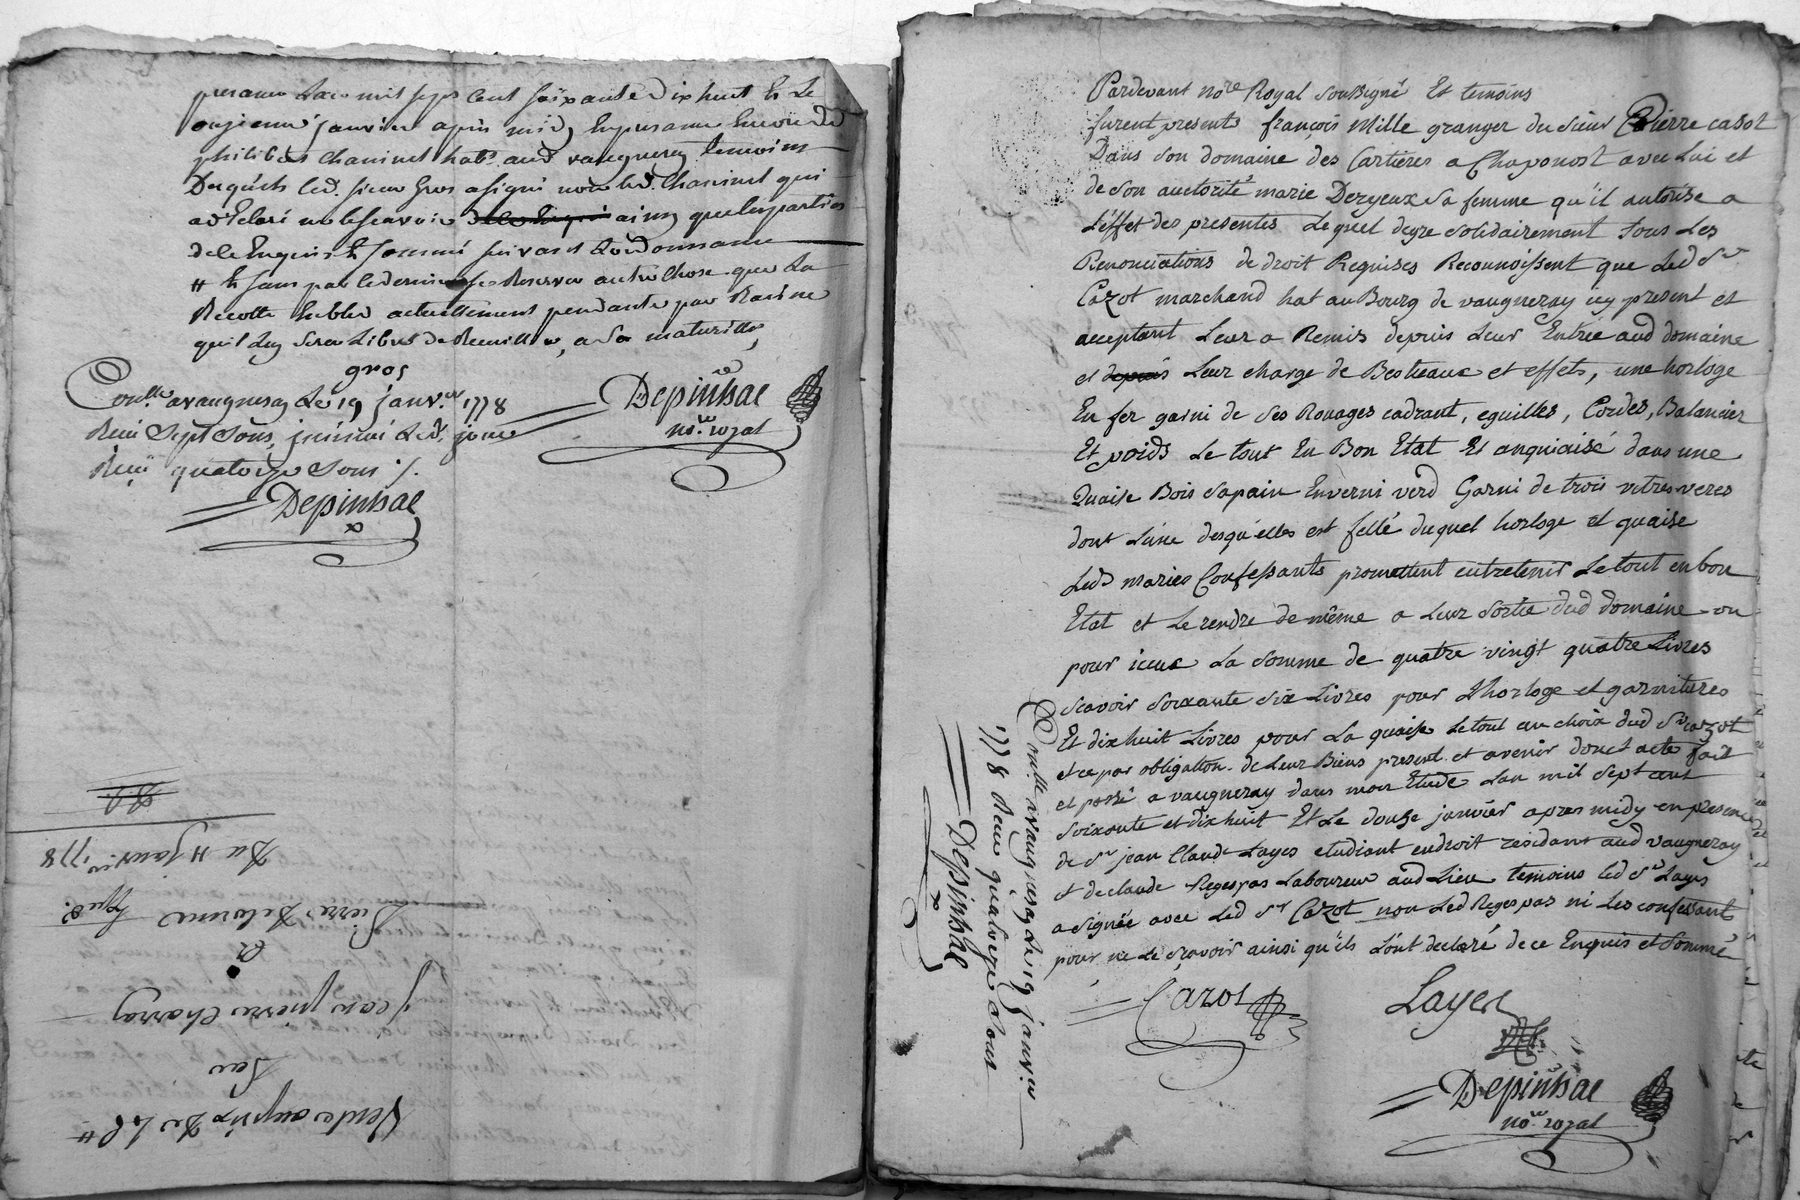 presance Lan mil sept Cent soixante dix huit & Le
onzieme janvier apres midy En presance Encore de
philibert Chaninel hab. aud vaugneray temoins
Desquels led. sieur Gros a signé non led. Chaninel qui
a declaré ne le scavoir ainsy que les parties
de ce Enquis & sommé suivant Lordonnance
# & sans par le dernier se Reserver autre Chose que La
Recolte bleds actuellement pendante par Racine
qu'il luy sera Libre de Recuillir, a sa maturitté,
gros
Con.lle a vaugneray Le 19 janv.er 1778
Reçu Sept Sous,
Reçu quatorze sous
Depinhac
no.re royal
Depinhac
Vente au prix de
Par
Jean pierre Charray
A
Pierre Delorme
Du 11 janvier 1778
Pardevant no.re Royal Soussigné Et temoins
furent presents françois Mille granger du sieur Pierre cazot
Dans son domaine des Cartieres a Chaponost avec Lui et
de son auctorité marie Deryeux sa femme qu'il autorise a
L'éffet des presentes Lequel degre solidairement sous Les
Renonciations de droit Requises Reconnoissent que Led Sr
Cazot marchand hat au Bourg de vaugneray icy present et
acceptant Leur a Remis depuis Leur Entrée aud domaine
et depuis Leur charge de Bestieaux et effets, une horloge
En fer garni de Ses Rouages cadrant, eguilles, Cordes, Balancier
Et poids Le tout En Bon Etat Et anquiaisé dans une
Quaise Bois Sapain Enverni verd Garni de trois vitres veres
dont L'une desqu'elles est fellé duquel horloge et quaise
Leds mariés Confessants promettent entretenir Le tout en bon
Etat et Le rendre de même a Leur Sortie dud domaine ou
pour iceux La Somme de quatre vingt quatre Livres
Scavoir Soixante Six Livres pour L'horloge et garnitures
Et dix huit Livres pour La quaise Le tout au choix dud Sr cazot
et ce par obligation de Leur Biens present et avenir donct acte fait
et passé a vaugneray dans mon Etude Lan mil sept cent
soixante et dix huit Et Le douse janvier apres midy en presence
de Sr jean Claude Layes etudiant en droit residant aud vaugneray
et de claude Regespas Laboureur aud Lieu temoins led Sr Layes
a signée avec Led Sr Cazot non Led Regespas ni Les confessants
pour ne Le Scavoir ainsi qu'ils L'ont declaré de ce Enquis et Sommé
Cazot
Layes
Depinhac
no.re royal
Con.lle a vaugneray Le 19 janv.er
1778 Reçu quatorze sous
Depinhac